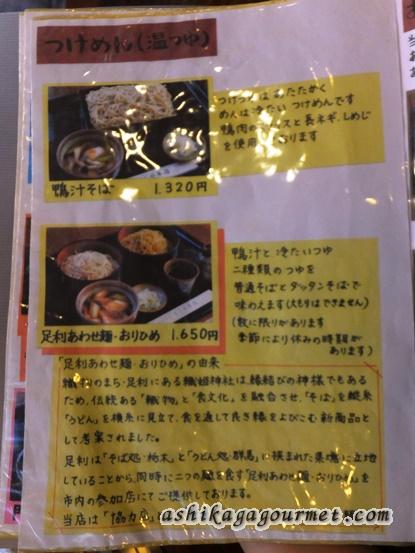 つけめん(温つゆ)
つけつゆはあたたかく
めんは冷たい つけめんです
鴨肉の スと長ネギ、しめじ
を使用 おります
鴨汁そば 1.320円
鴨汁と 冷たいつゆ
二種類の つゆを
普通そばと ダッタンそばで
味わえます(大もりは できません)
(数に限りがあります
季節により休みの時期が
あります)
足利あわせ麺・おりひめ 1.650円
「足利あわせ麺・おりひめ」の由来
織物のまち・足利にある織姫神社は縁結びの神様でもある
ため、伝統ある「織物」と「食文化」を融合させ、「そば」を縦糸
「うどん」を横糸に見立て、食を通して良き縁をよびこむ新商品とし
て考案されました。
足利は「そば処・栃木」と「うどん処・群馬」に挟まれた県境に立地
していることから、同時に二つの麺を食す「足利あわせ麺・おりひめ」を
市内の参加店にてご提供しております。
当店は「協力店
ashikagagourmet.com